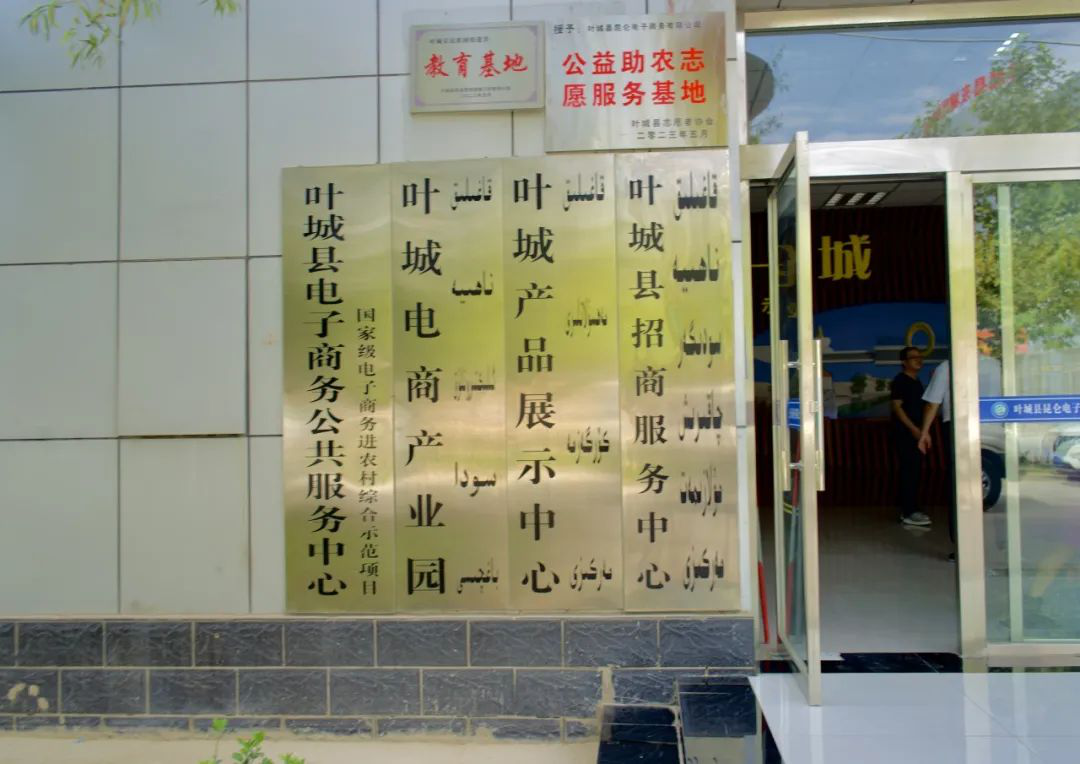 教育基地
授予：叶城县昆仑电子商务有限公司
公益助农志
愿服务基地
叶城县志愿者协会
二〇二三年五月
叶城县电子商务公共服务中心
国家级电子商务进农村综合示范项目
叶城电商产业园
قاغىلىق
ناھىيە
سودا
باغچىسى
叶城产品展示中心
قاغىلىق
مەھسۇلاتلىرى
كۆرگەزمە
مەركىزى
叶城县招商服务中心
قاغىلىق
ناھىيە
سودىگەر
چاقىرىش
مۇلازىمەت
مەركىزى
城
叶城县昆仑电子